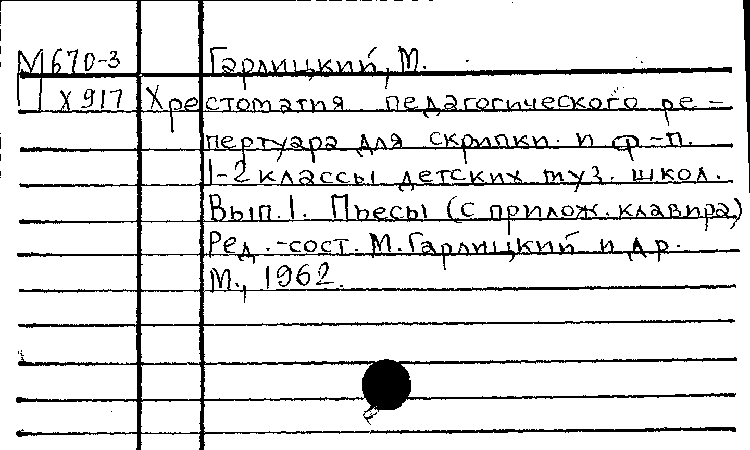 М670-3 Гарлицкий, М.
Х917 Хрестоматия педагогического ре-
пертуара для скрипки и ф-п.
1-2 классы детских муз. школ.
Вып.1. Пьесы (с прилож. клавира)
Ред.-сост. М. Гарлицкий и др.
М., 1962.